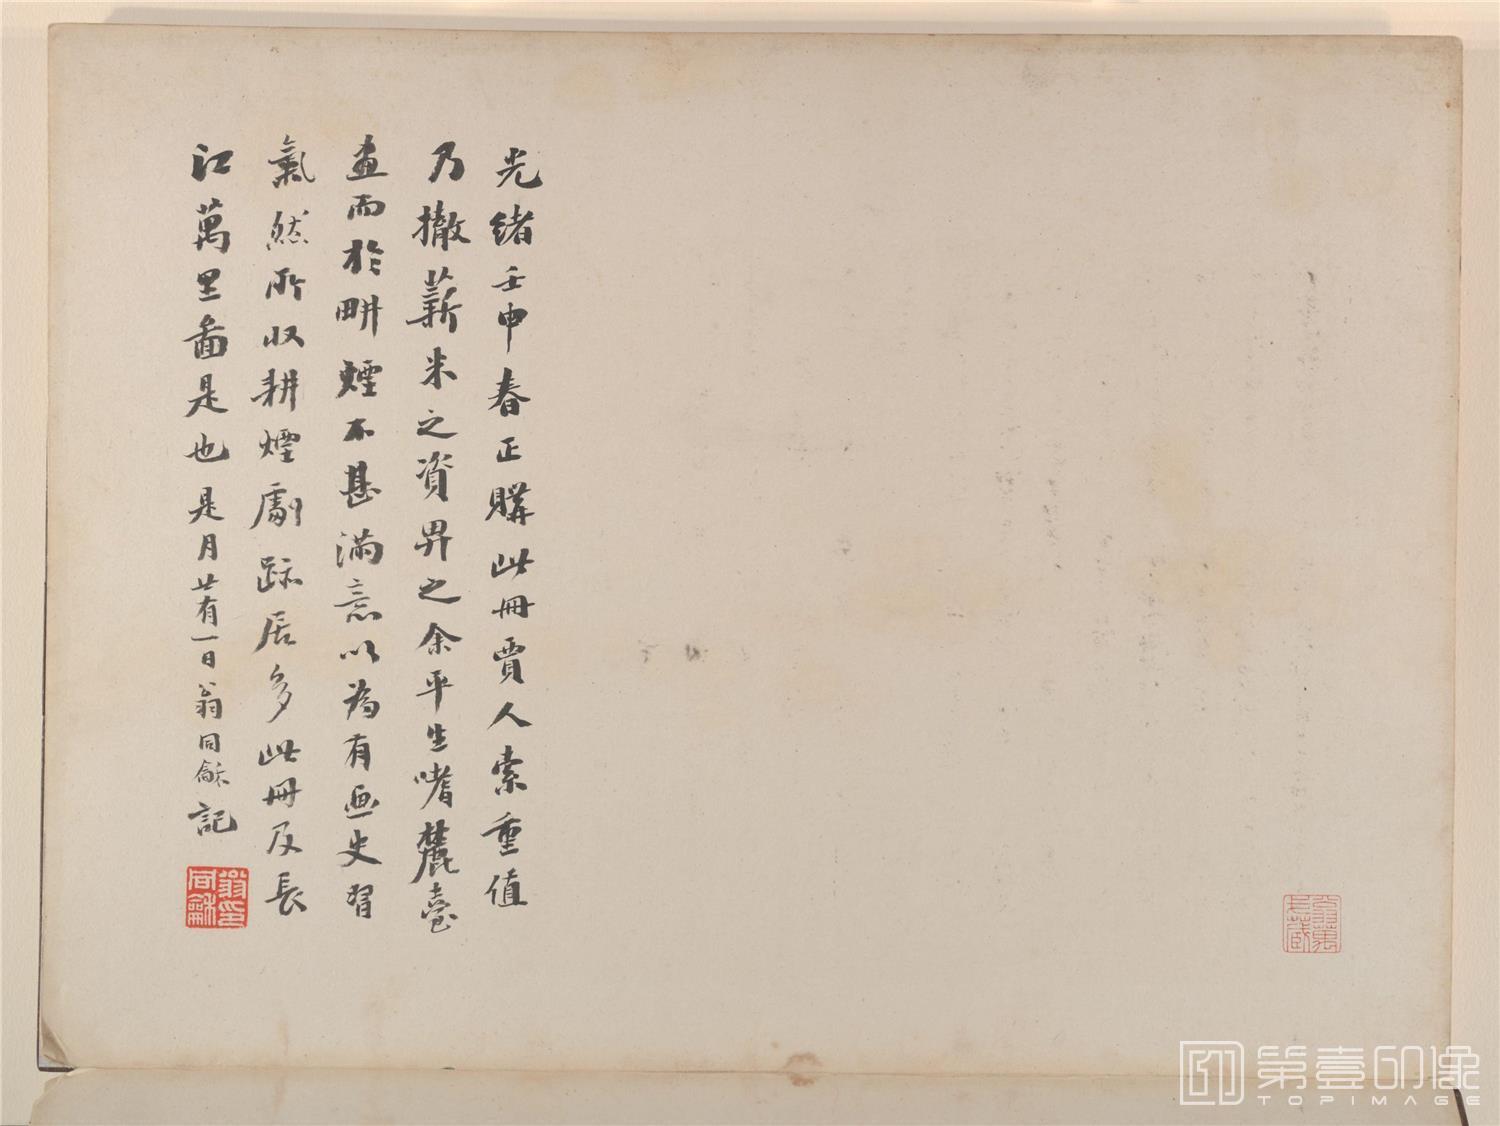 光緒壬申春正購此冊賈人索重值
乃撤薪米之資畀之余平生嗜麓臺
畫而於畊煙不甚滿意以為有畫史習
氣然所収耕煙劇跡居多此冊及長
江萬里啚是也是月廿有一日翁同龢記
翁同龢印
翁萬戈藏
第壹印像
TOPIMAGE